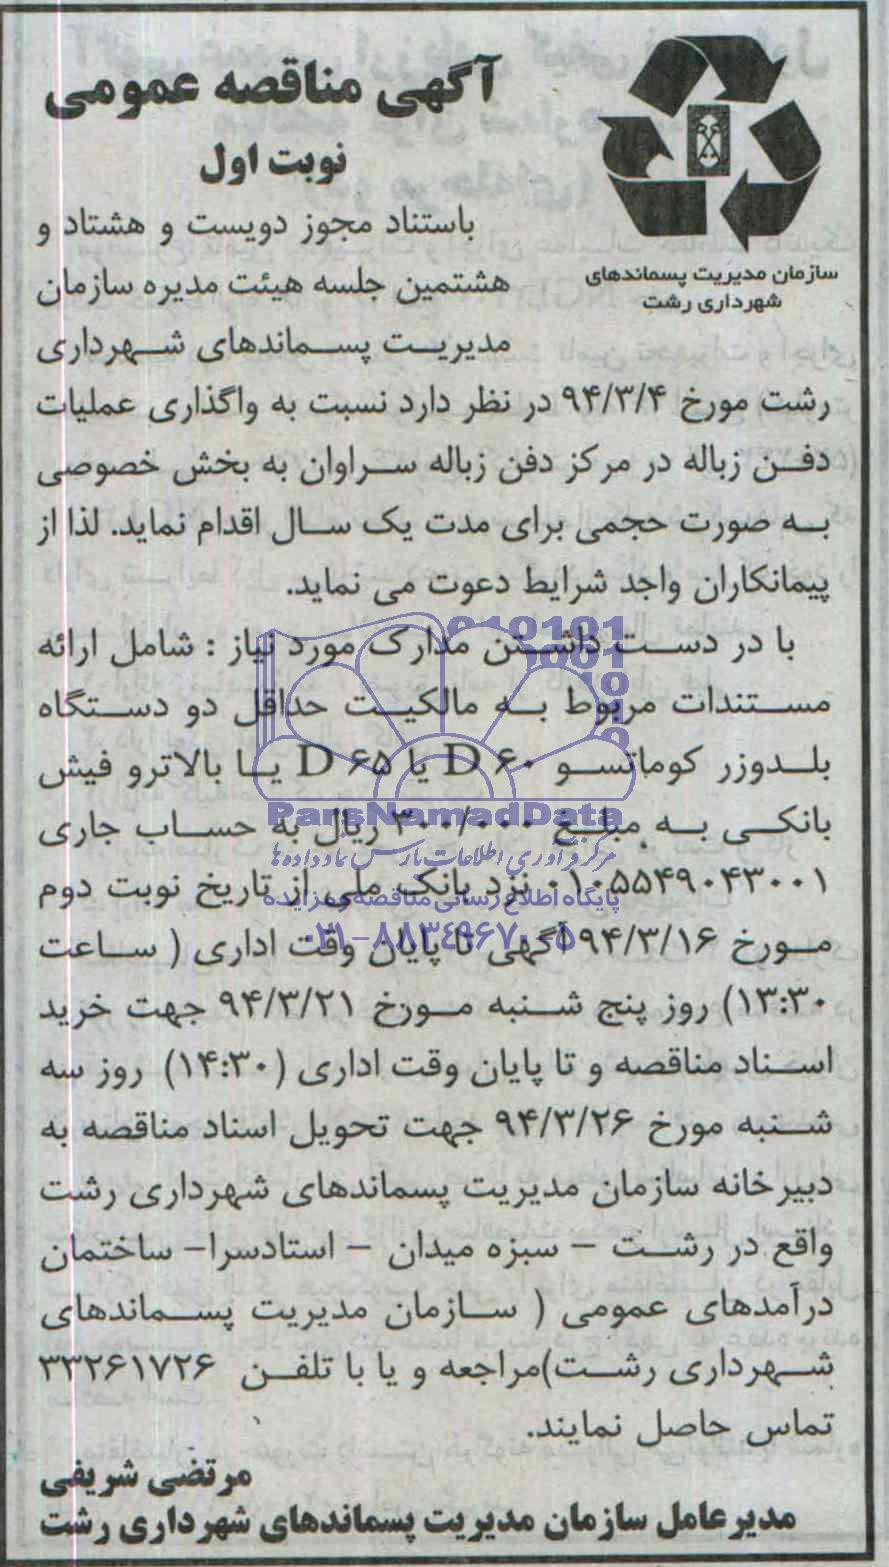 آگهی مناقصه عمومی
نوبت اول
سازمان مدیریت پسماندهای
شهرداری رشت
باستناد مجوز دویست و هشتاد و
هشتمین جلسه هیئت مدیره سازمان
مدیریت پسماندهای شهرداری
رشت مورخ ۹۴/۳/۴ در نظر دارد نسبت به واگذاری عملیات
دفن زباله در مرکز دفن زباله سراوان به بخش خصوصی
به صورت حجمی برای مدت یک سال اقدام نماید. لذا از
پیمانکاران واجد شرایط دعوت می نماید.
با در دست داشتن مدارک مورد نیاز : شامل ارائه
مستندات مربوط به مالکیت حداقل دو دستگاه
بلدوزر کوماتسو D ۶۰ یا D ۶۵ یا بالاترو فیش
بانکی به مبلغ ۳۰۰/۰۰۰ ریال به حساب جاری
۰۱۰۵۵۴۹۰۴۳۰۰۱ نزد بانک ملی از تاریخ نوبت دوم
مورخ ۹۴/۳/۱۶ آگهی تا پایان وقت اداری ( ساعت
۱۳:۳۰) روز پنج شنبه مورخ ۹۴/۳/۲۱ جهت خرید
اسناد مناقصه و تا پایان وقت اداری (۱۴:۳۰) روز سه
شنبه مورخ ۹۴/۳/۲۶ جهت تحویل اسناد مناقصه به
دبیرخانه سازمان مدیریت پسماندهای شهرداری رشت
واقع در رشت – سبزه میدان – استادسرا– ساختمان
درآمدهای عمومی ( سازمان مدیریت پسماندهای
شهرداری رشت)مراجعه و یا با تلفن ۳۳۲۶۱۷۲۶
تماس حاصل نمایند.
مرتضی شریفی
مدیرعامل سازمان مدیریت پسماندهای شهرداری رشت
ParsNamadData
مرکز فرآوری اطلاعات پارس نماد داده ها
پایگاه اطلاع رسانی مناقصه و مزایده
۰۲۱-۸۸۳۴۹۶۷۰-۵